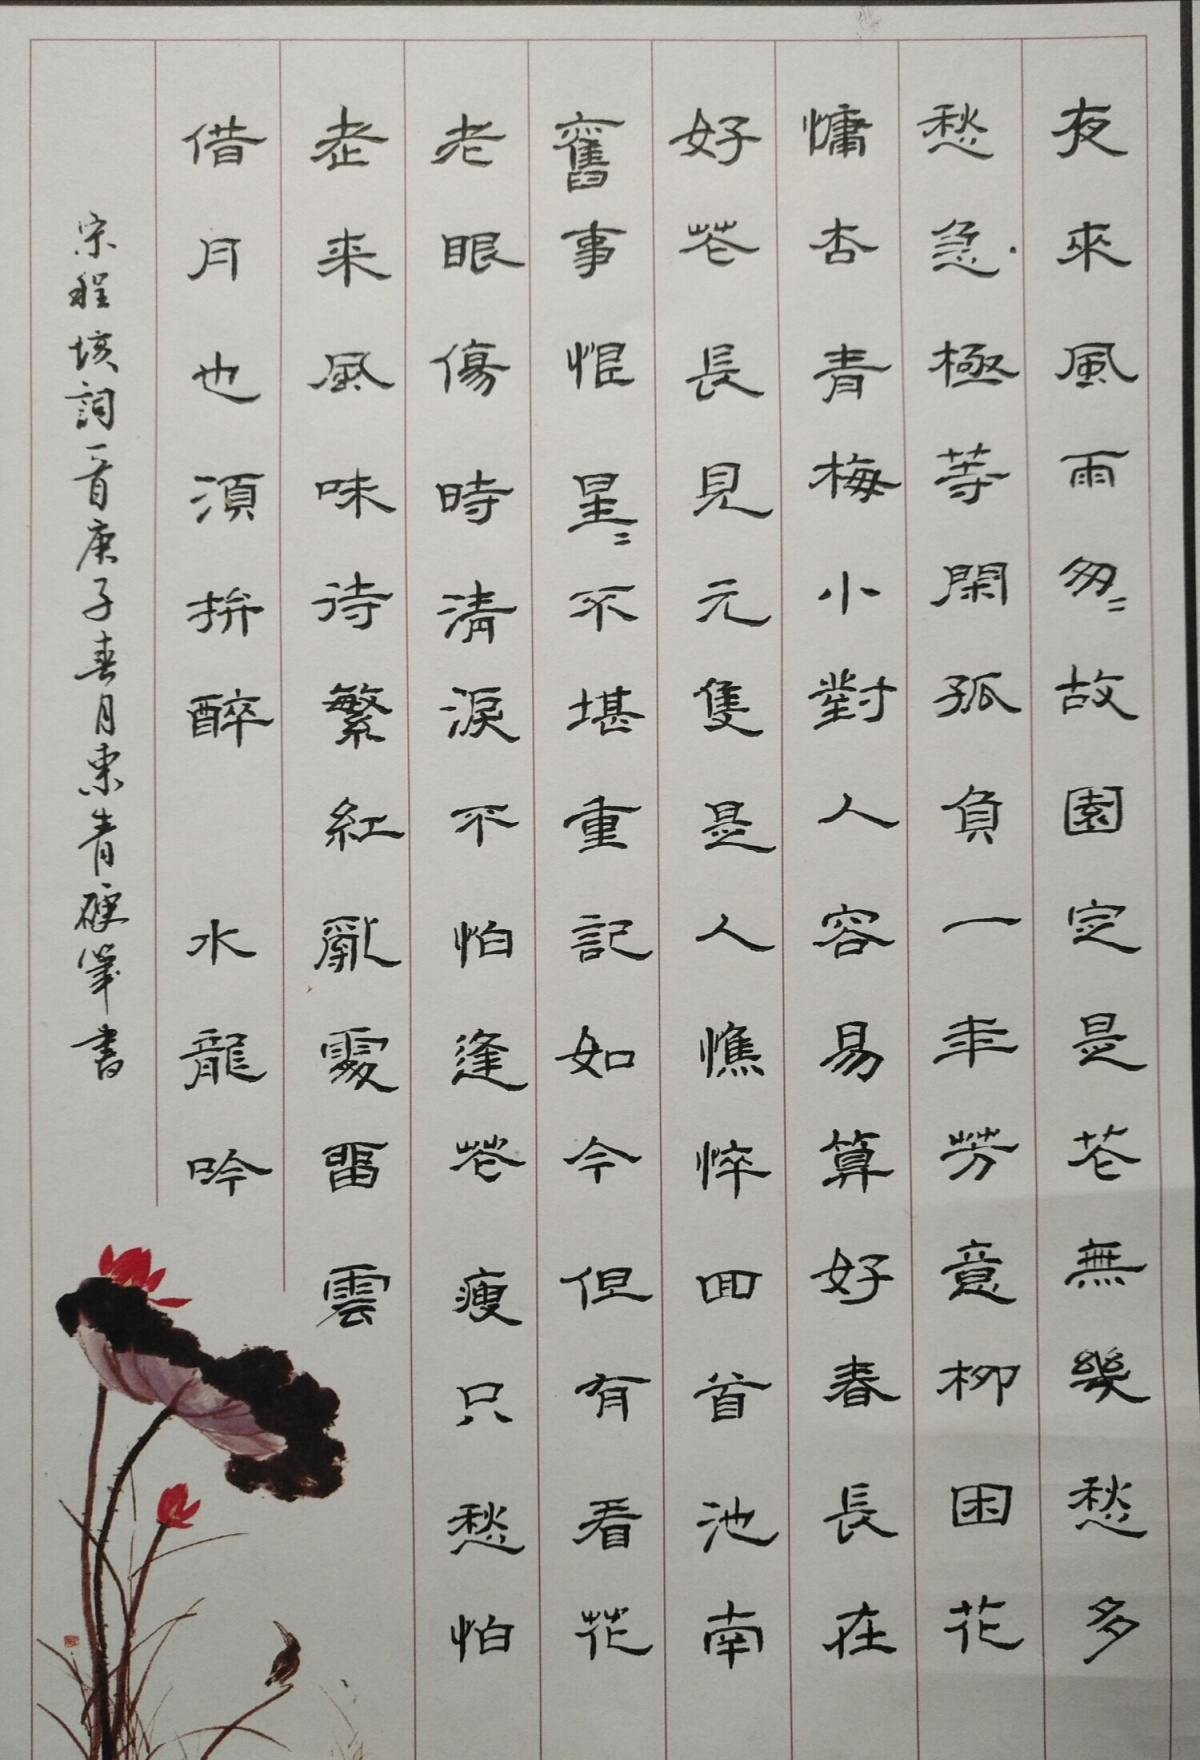 夜來風雨匆〻故園定是花無幾愁多
愁急極等閑孤負一年芳意柳困花
慵杏青梅小對人容易算好春長在
好花長見元隻是人憔悴回首池南
舊事恨星〻不堪重記如今但有看花
老眼傷時清淚不怕逢花瘦只愁怕
老来風味待繁紅亂處留雲
借月也須拚醉 水龍吟
宋程垓詞一首庚子春月東青硬筆書